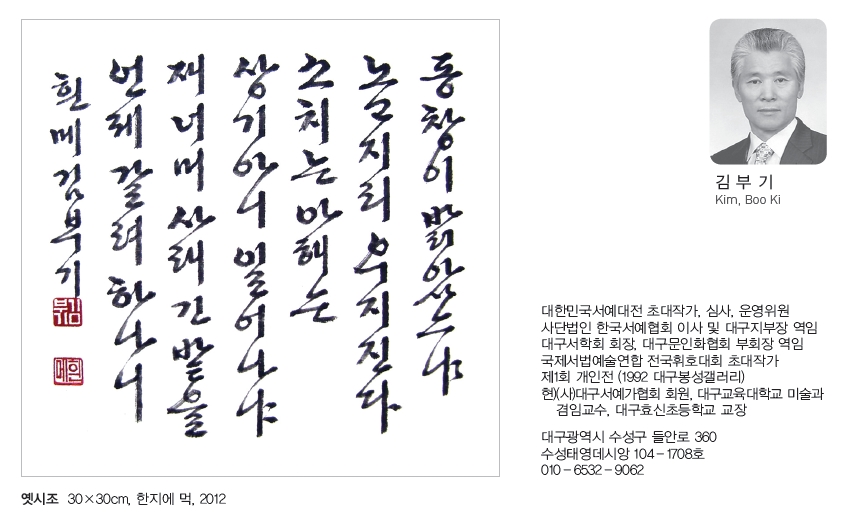 동창이 밝았느냐
노고지리 우지진다
소치는 아해는
상기 아니 일어나냐
재너머 사래 긴 밭을
언제 갈려 하나니
흰메 김부기
김부기
흰메
옛시조 30×30cm, 한지에 먹, 2012
김 부 기
Kim, Boo Ki
대한민국서예대전 초대작가, 심사, 운영위원
사단법인 한국서예협회 이사 및 대구지부장 역임
대구서학회 회장, 대구문인화협회 부회장 역임
국제서법예술연합 전국휘호대회 초대작가
제1회 개인전 (1992 대구봉성갤러리)
현)(사)대구서예가협회 회원, 대구교육대학교 미술과
겸임교수, 대구효신초등학교 교장
대구광역시 수성구 들안로 360
수성태영데시앙 104-1708호
010-6532-9062